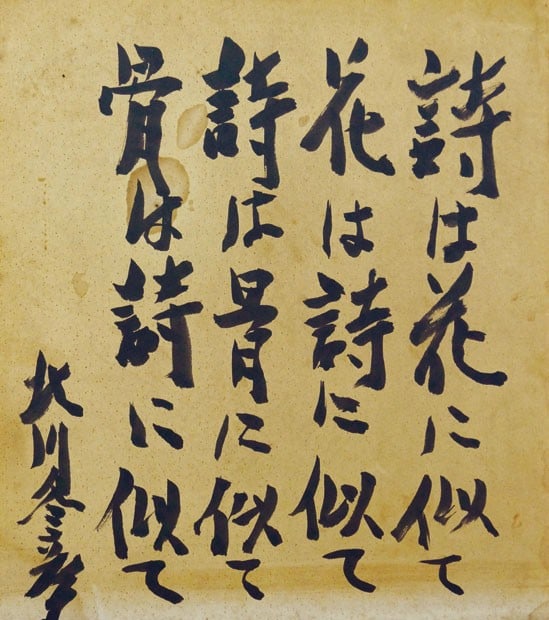 詩は花に似て
花は詩に似て
詩は骨に似て
骨は詩に似て
北川冬彦